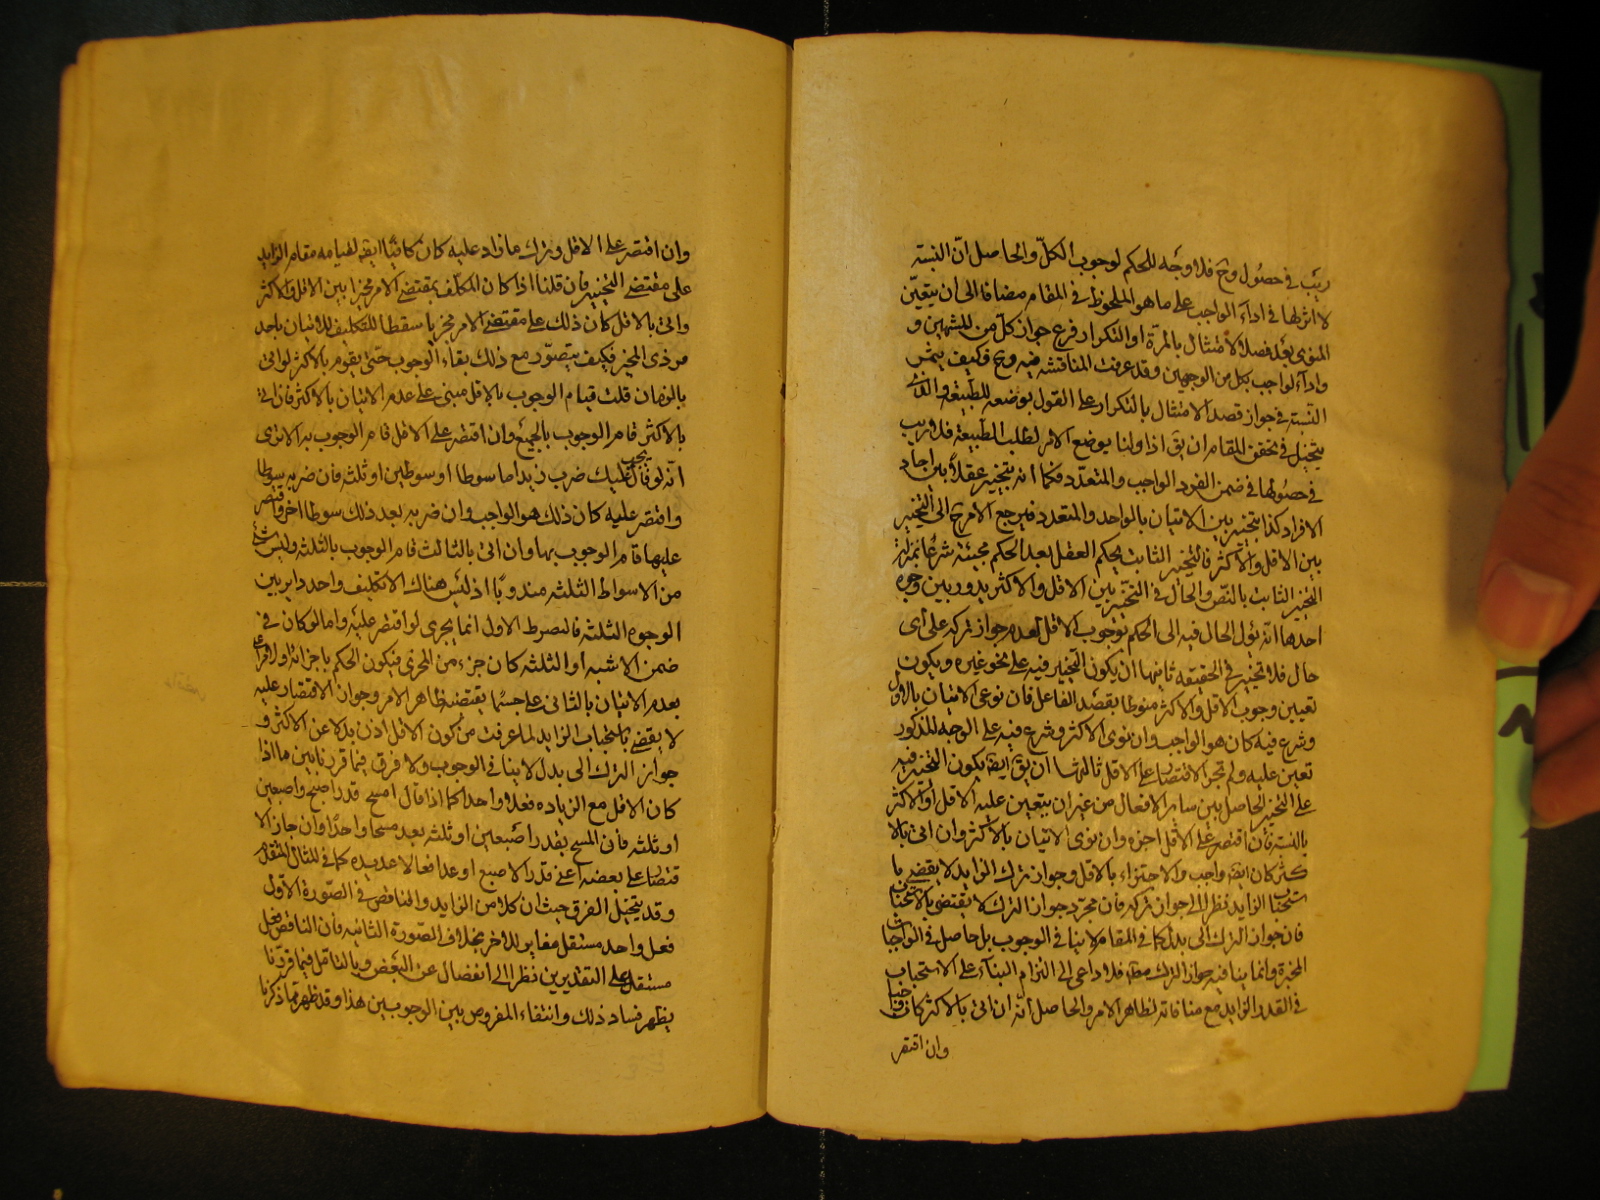 ريب في حصول وح فلا وجه للحكم لوجوب الكلّ والحاصل انّ النسبة
لا اثر لها في اداء الواجب على ما هو الملحوظ في المقام مضافا الى ان يتعيّن
المنوى بعد فصد الامتثال بالمرّة او التكرار فرع جواز كلّ من الشهين و
واداء لواجب بكل من الوجهين وقد عرفت المناقشة فيه وح فكيف يتمش
النسبة في جواز قصد الامتثال بالتكرار على القول بوضعه للطبيعة والذى
يتخيل في تحقق المقام ان يق اذا ولنا بوضع الامر لطلب الطبيعة فلا ريب
في حصولها في ضمن الفرد الواجب والمتعدّد فكما انه يتخير عقلا بين اجاد
الافراد كذا يتخير بين الاتيان بالواحد والمتعدد فيرجع الامر ح الى التخيير
بين الاقل والاكثر فالتخيير الثابت بحكم العقل بعد الحكم مجيئه شرعا بمنزلة
التخيير الثابت بالنصّ والحال في التخيير بين الاقل والاكثر يدور بين وجوه
احدها انه يؤل الحال فيه الى الحكم بوجوب الاقل لعدم جواز تركه على اى
حال فلا تخيير في الحقيقه ثانيها ان يكون التخيير فيه على نحو غيره ويكون
تعيين وجوب الاقل والاكثر منوطا بقصد الفاعل فان نوى الاتيان بالاول
وشرع فيه كان هو الواجب وان نوى الاكثر وشرع فيه على الوجه المذكور
تعين عليه ولم يجز الاقتصار على الاقل ثالثها ان يق ايضا بكون التخيير فيه
على التخيير الحاصل بين ساير الافعال من غير ان يتعيين عليه الاقل او الاكثر
بالنسبة فان اقتصر على الاقل اجزه وان نوى الاتيان بالاكثر وان اتى بالا
كثر كان ايضا واجب والاجتزاء بالاقل وجواز ترك الزايد لا يقضى با
ستحباب الزايد نظرا الى جواز تركه فان مجرّد جواز الترك لا يقتضى بالاستحباب
فان جواز الترك الى بدل كما في المقام لا ينافي الوجوب بل حاصل في الواجبات
المخيرة وانما ينافيه جواز الترك مطلقا فلا داعى الى التزام البناء على الاستحباب
في القدر الزايد مع منافاته لظاهر الامر والحاصل انّه ان اتى بالاكثر كان واجبا
وان اقتصر
وان اقتصر على الاقل وترك ما زاد عليه كان كافيا ايضا لقيامه مقام الزايد
على مقتضى التخيير فان قلنا اذا كان المكلّف بمقتضى الامر مخيرا بين الاقل والاكثر
واتى بالاقل كان ذلك على مقتضى الامر مجزيا مسقطا للتكليف للاتيان باحد
فردى المخير فكيف يتصوّر مع ذلك بقاء الوجوب حتى يقوم بالاكثر لو اتى
بالزمان قلت قيام الوجوب بالاقل مبنى على عدم الاتيان بالاكثر فان اتى
بالاكثر قام الوجوب بالجميع وان اقتصر على الاقل قام الوجوب به الا ترى
انّه لو قال يجب عليك ضرب زيد اما سوطا او سوطين او ثلثه فان ضربه سوطا
واقتصر عليه كان ذلك هو الواجب وان ضربه بعد ذلك سوطا اخر واقتصر
عليها قام الوجوب بها وان اتى بالثالث قام الوجوب بالثلثه وليس شئ
من الاسواط الثلثه مندوبا اذ ليس هناك الا تكليف واحد داير بين
الوجوه الثلثه فالصرط الاول انما يجرى لو اقتصر عليه واما لو كان في
ضمن الاشبه او الثلثه كان جزء من المجزى فيكون الحكم باجزائه اولا مراعى
بعدم الاتيان بالثانى على حسبما يقتضيه ظاهر الامر وجواز الاقتصار عليه
لا يقضى باستحباب الزايد لما عرفت من كون الاقل اذن بدلا عن الاكثر و
جواز الترك الى بدل لا ينافي الوجوب ولا فرق فيما قررنا بين ما اذا
كان الاقل مع الزياده فعلا واحدا كما اذا قال امسح قدر اصبع واصبعين
او ثلثه فان المسح بقدر اصبعين او ثلثه بعد مسحا واحدا وان جاز الا
قتصار على بعضه اعنى قدر الاصبع او عد افعالا عديده كما في المثال المتقدم
وقد يتخيل الفرق حيث ان كلا من الزايد والناقص في الصّورة الاول
فعل واحد مستقل مغاير للاخر بخلاف الصّورة الثانيه فان الناقص فعل
مستقل على التقديرين نظرا الى انفصال عن البعض وبالتامل فيما قررنا
يظهر فساد ذلك وانتفاء المفروض بين الوجوبين هذا وقد ظهر بما ذكرنا